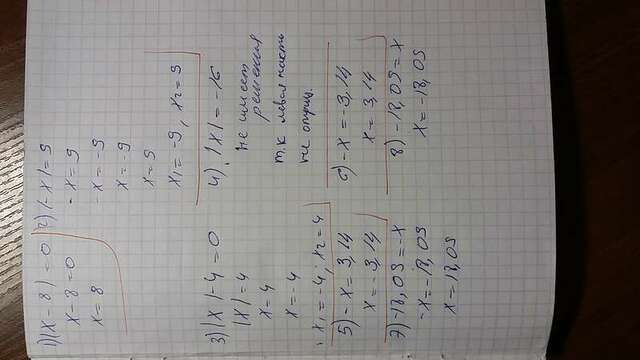 1) |x-8|=0
x-8=0
x=8
2) |-x|=9
-x=9
-x=-9
x=-9
x=9
x₁=-9, x₂=9
3) |x|-4=0
|x|=4
x=4
x=-4
x₁=-4; x₂=4
4) |x|=-16
не имеет
решения
т.к левая часть
не отриц.
5) -x=3,14
x=-3,14
6) -x=-3,14
x=3,14
7) -18,09=-x
-x=-18,09
x=18,09
8) -18,09=x
x=-18,09